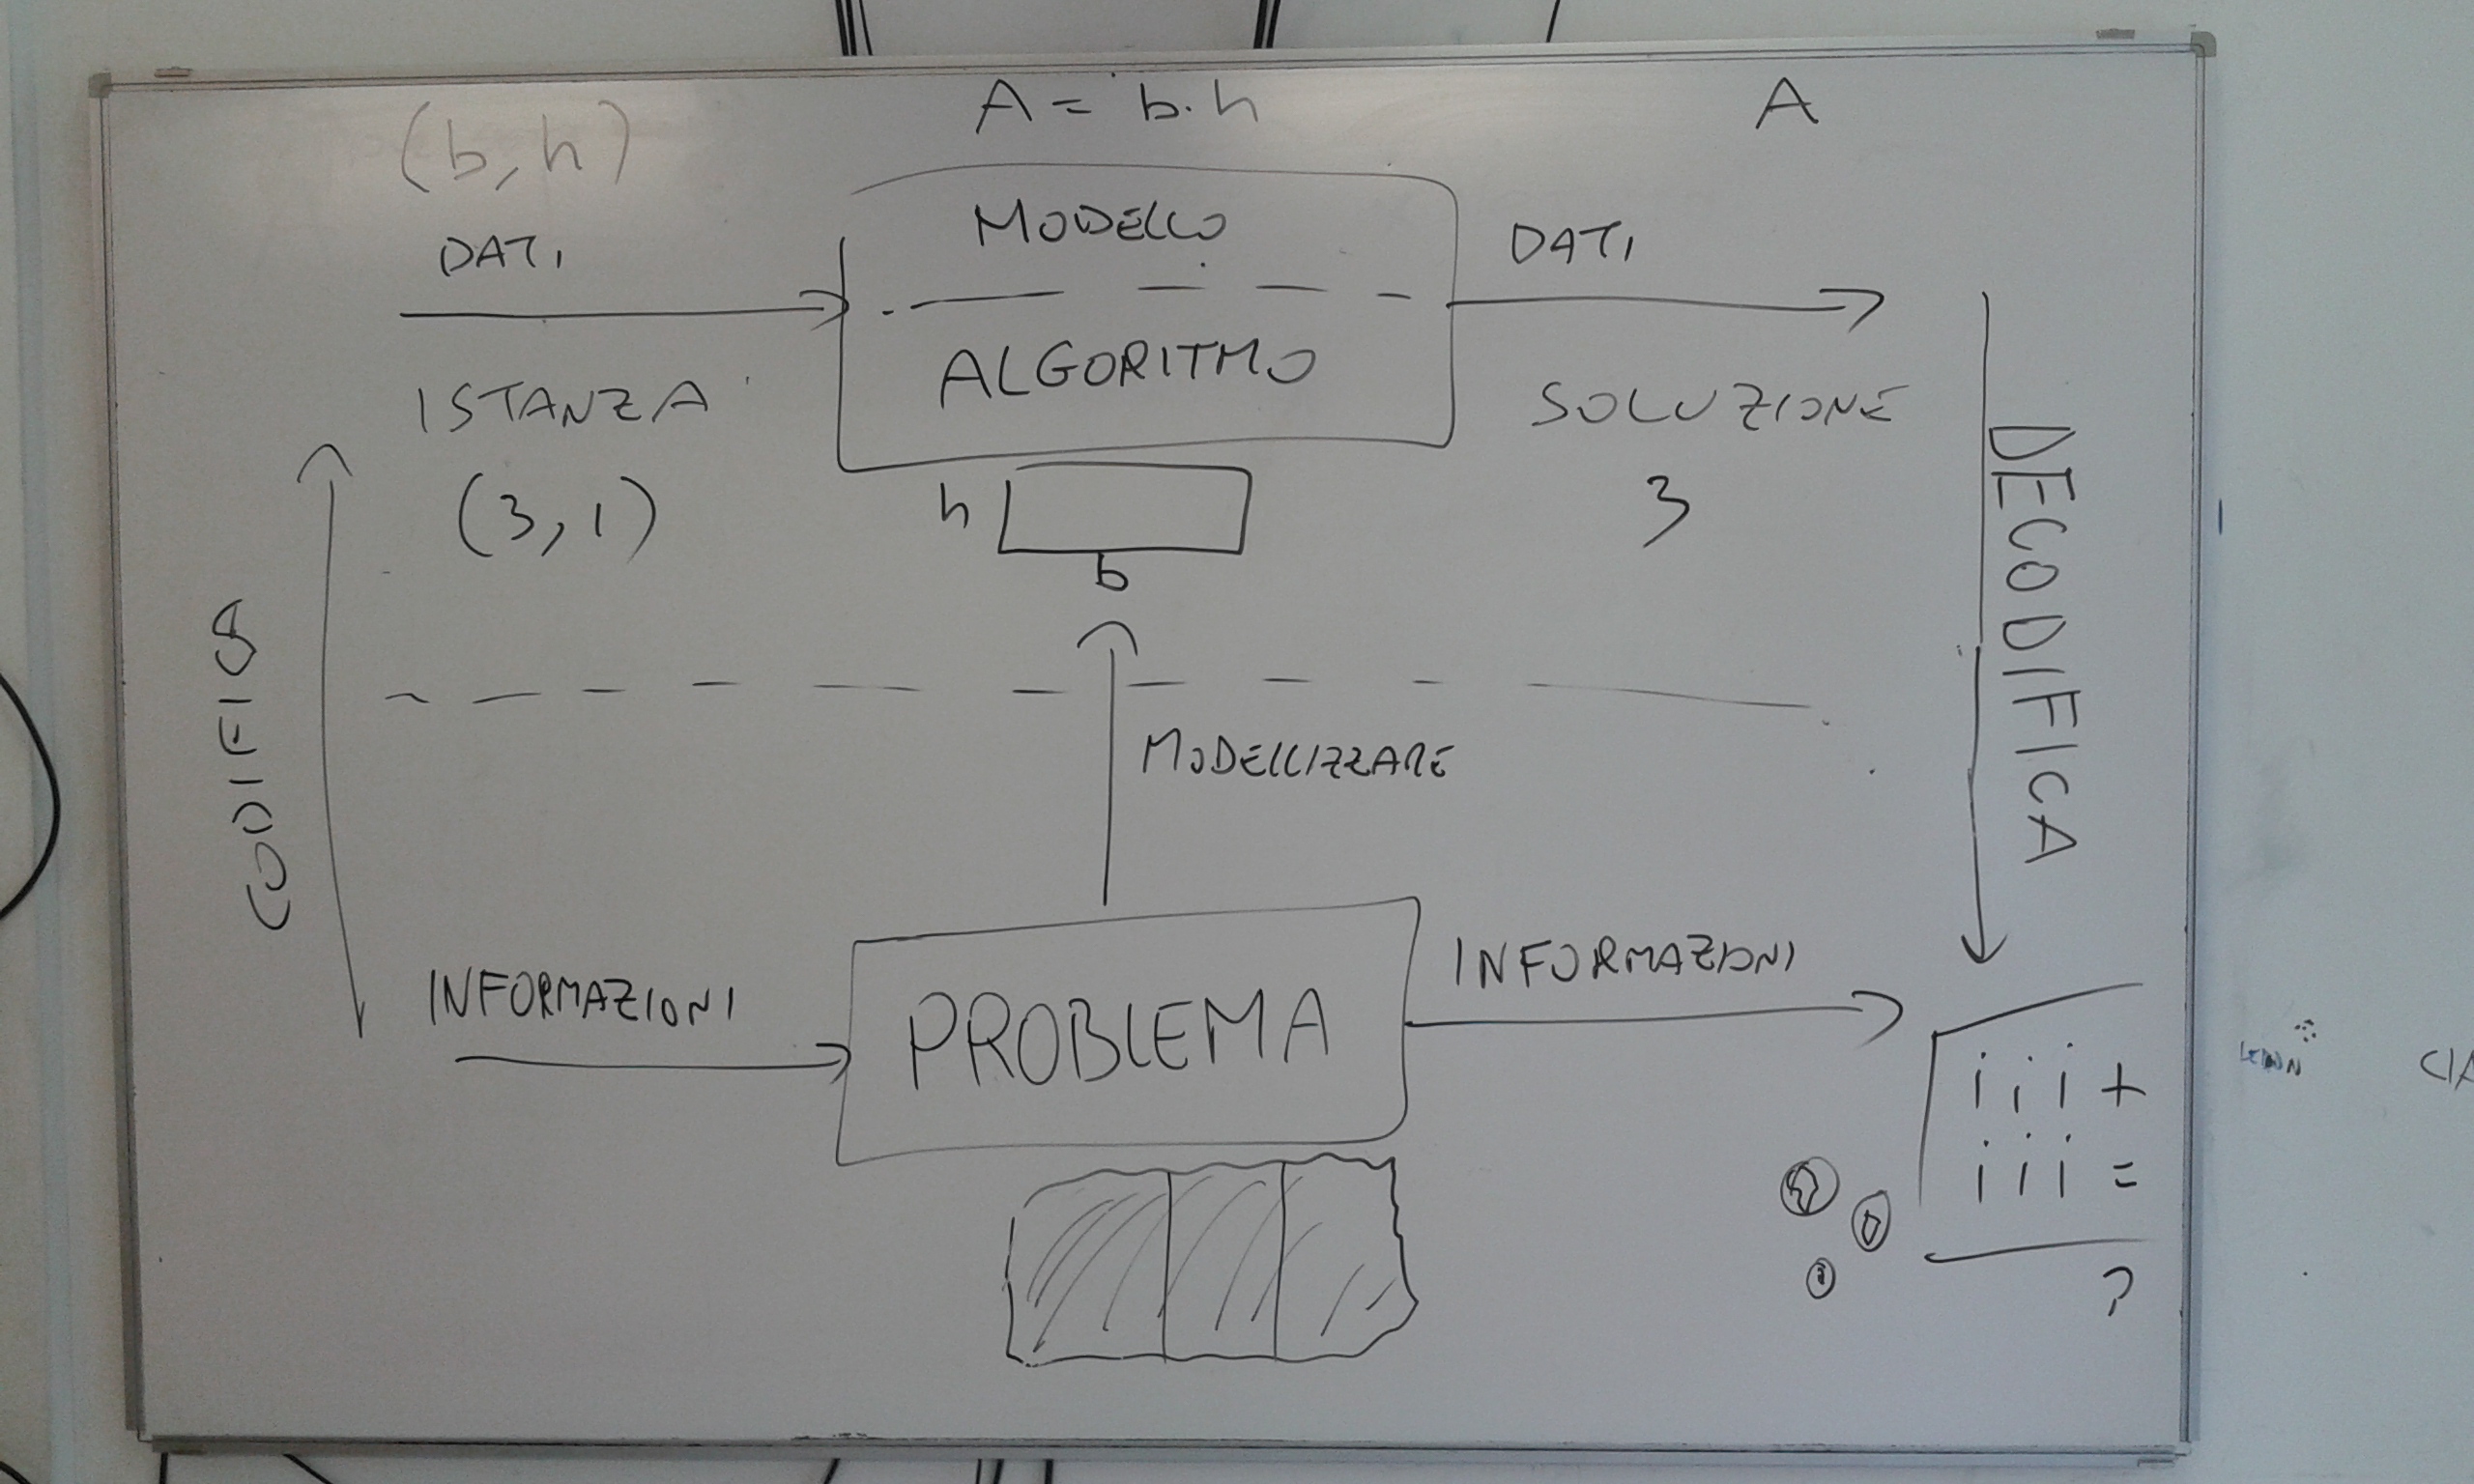 (b,h)
A = b·h
A
DATI
MODELLO
DATI
ALGORITMO
ISTANZA
SOLUZIONE
(3,1)
h
b
3
CODIFICA
DECODIFICA
MODELLIZZARE
INFORMAZIONI
PROBLEMA
INFORMAZIONI
i i i +
i i i =
?